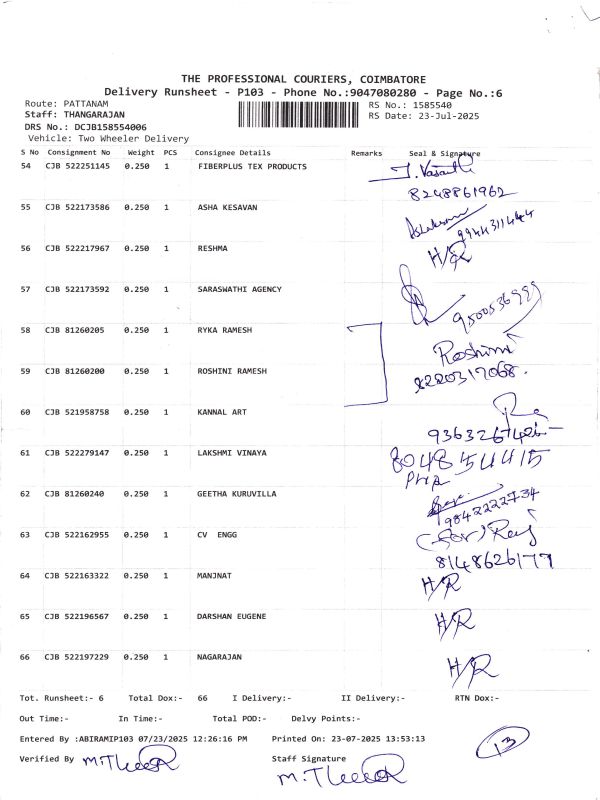 THE PROFESSIONAL COURIERS, COIMBATORE
Delivery Runsheet - P103 - Phone No.:9047080280 - Page No.:6
Route: PATTANAM
RS No.: 1585540
Staff: THANGARAJAN
RS Date: 23-Jul-2025
DRS No.: DCJB158554006
Vehicle: Two Wheeler Delivery
S No Consignment No Weight PCS Consignee Details Remarks Seal & Signature
54 CJB 522251145 0.250 1 FIBERPLUS TEX PRODUCTS
8248861962
55 CJB 522173586 0.250 1 ASHA KESAVAN
56 CJB 522217967 0.250 1 RESHMA H/R
57 CJB 522173592 0.250 1 SARASWATHI AGENCY
58 CJB 81260205 0.250 1 RYKA RAMESH
Roshini
59 CJB 81260200 0.250 1 ROSHINI RAMESH
8220317068.
60 CJB 521958758 0.250 1 KANNAL ART
61 CJB 522279147 0.250 1 LAKSHMI VINAYA
62 CJB 81260240 0.250 1 GEETHA KURUVILLA
9842222734
63 CJB 522162955 0.250 1 CV ENGG
8148626177
64 CJB 522163322 0.250 1 MANJNAT H/R
65 CJB 522196567 0.250 1 DARSHAN EUGENE H/R
66 CJB 522197229 0.250 1 NAGARAJAN H/R
Tot. Runsheet:- 6 Total Dox:- 66 I Delivery:- II Delivery:- RTN Dox:-
Out Time:- In Time:- Total POD:- Delvy Points:-
Entered By :ABIRAMIP103 07/23/2025 12:26:16 PM Printed On: 23-07-2025 13:53:13
Verified By Staff Signature
13